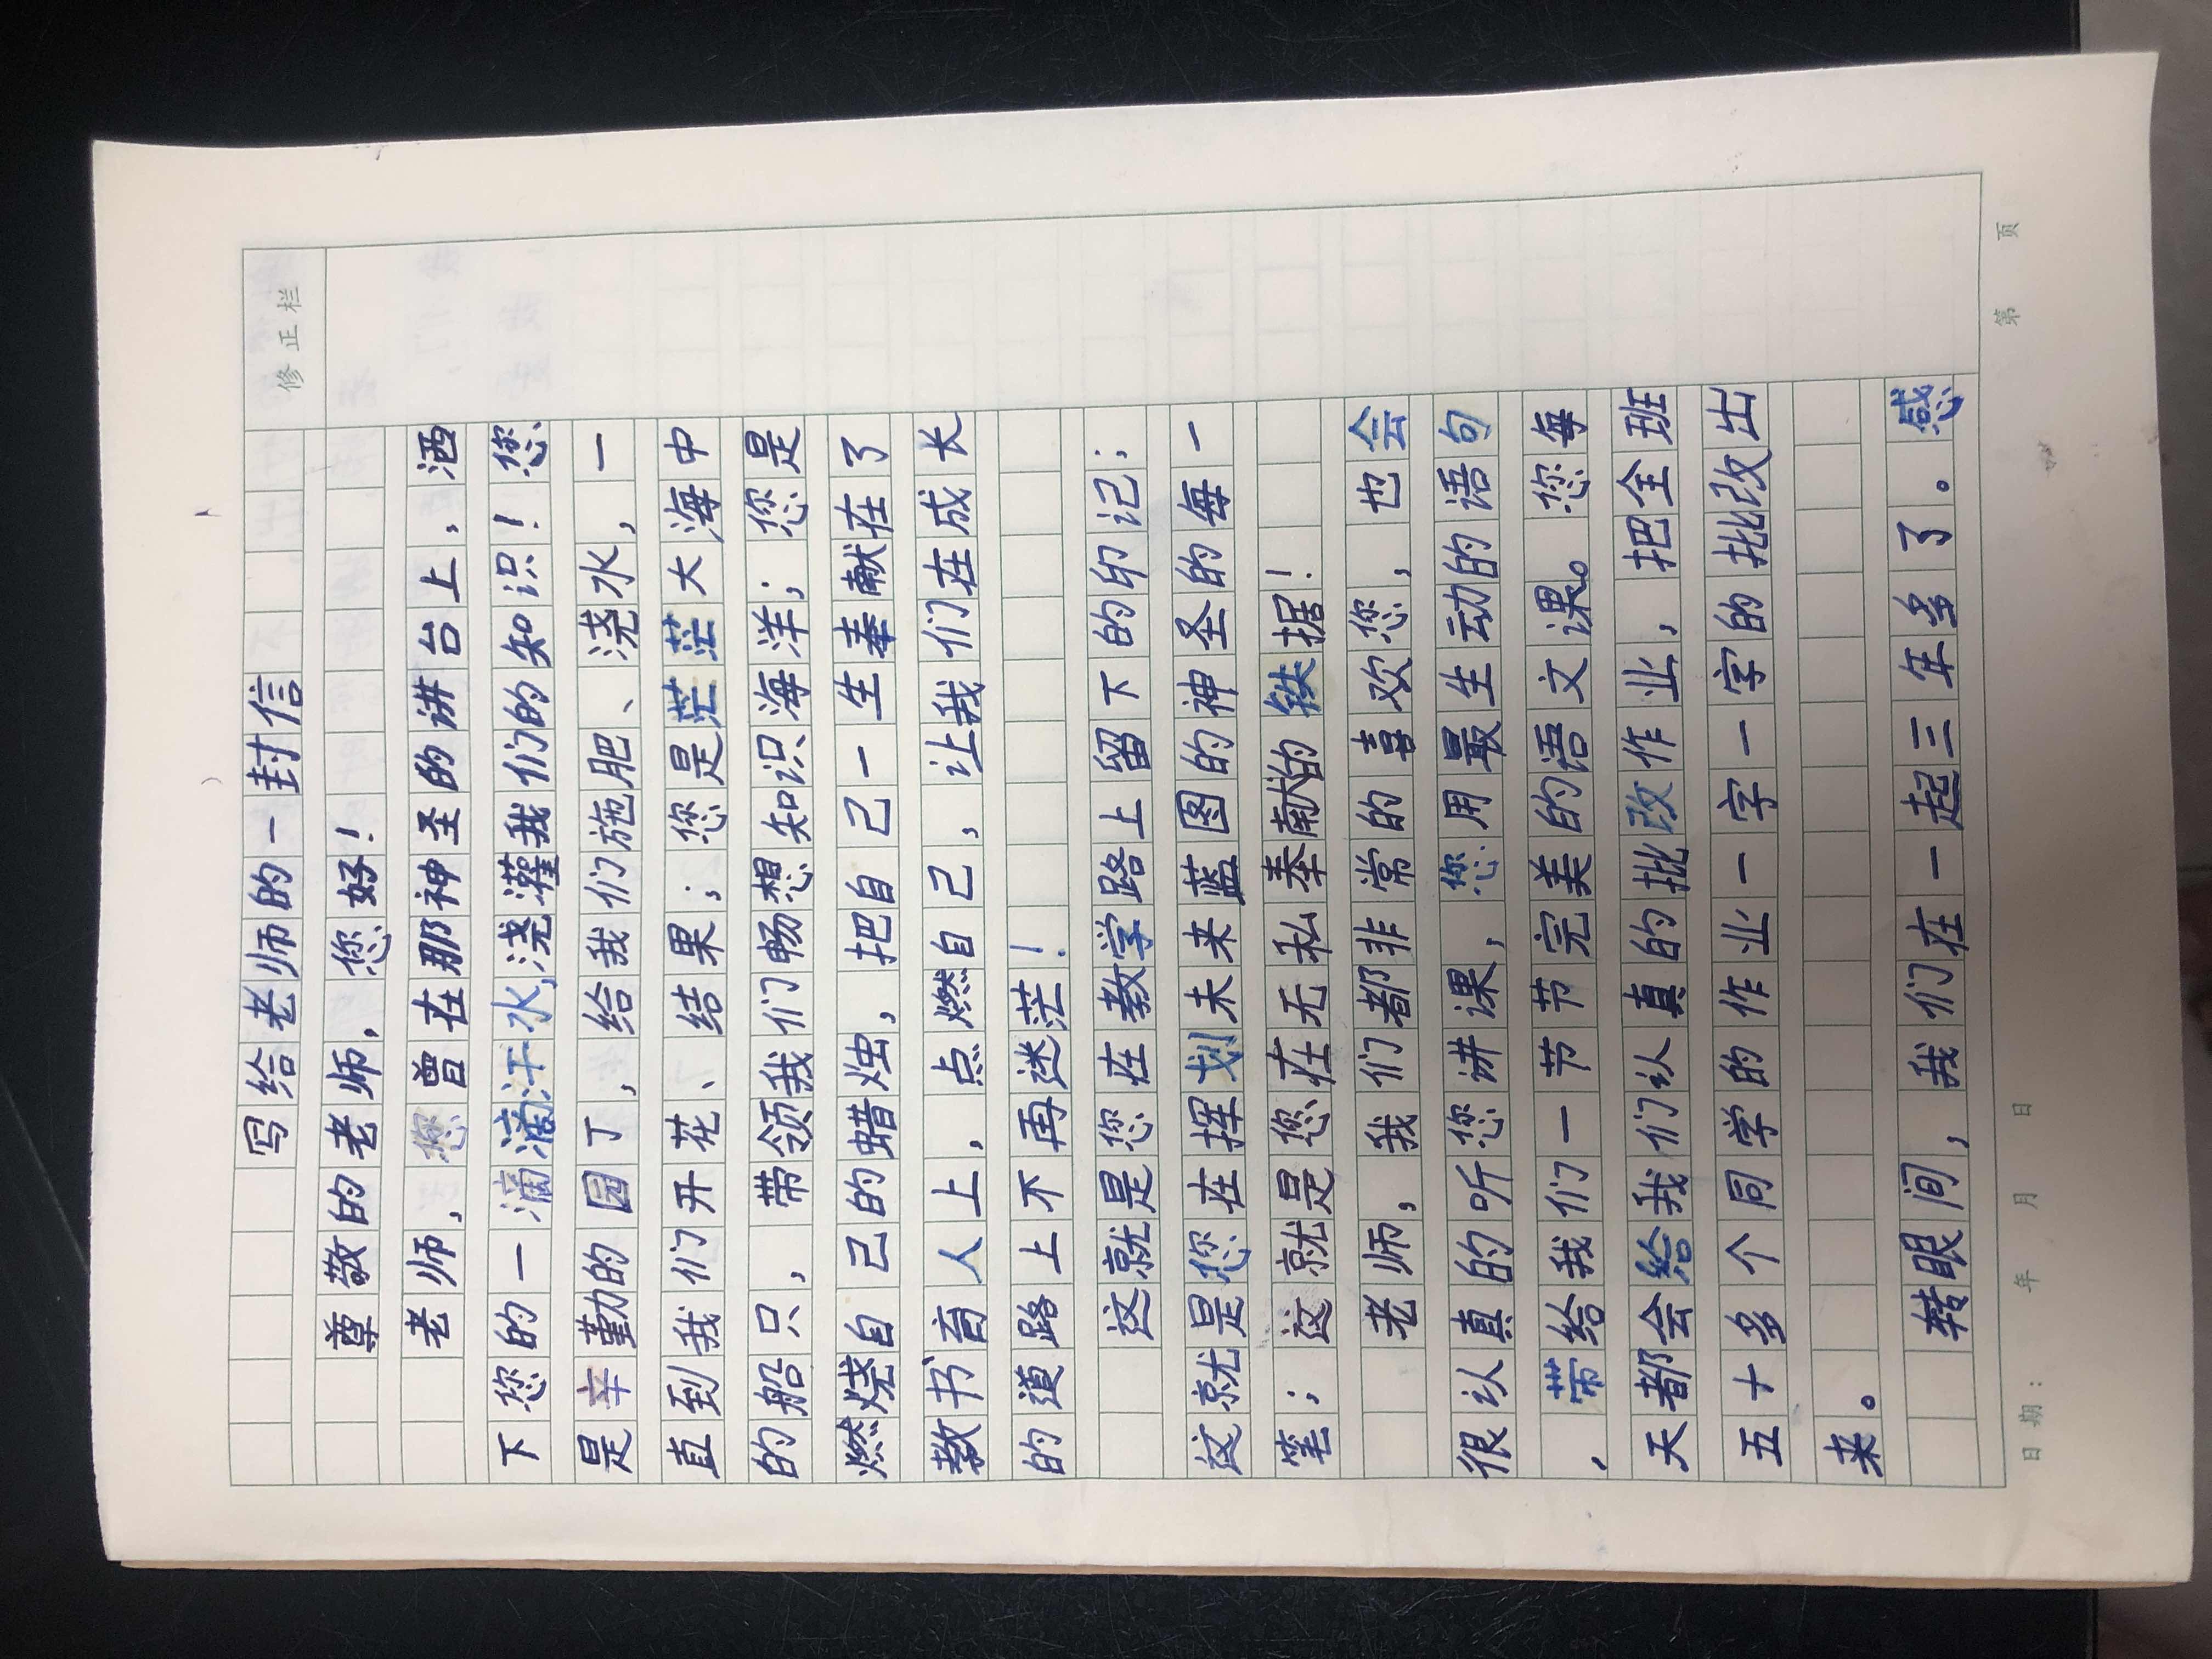 写给老师的一封信
修正栏
尊敬的老师，您好！
老师，您曾在那神圣的讲台上，洒
下您的一滴滴汗水，浇灌我们的知识！您
是辛勤的园丁，给我们施肥、浇水，一
直到我们开花、结果；您是茫茫大海中
的船只，带领我们畅想知识海洋；您是
燃烧自己的蜡烛，把自己一生奉献在了
教书育人上，点燃自己，让我们在成长
的道路上不再迷茫！
这就是您在教学路上留下的印记；
这就是您在挥划未来蓝图的神圣的每一
笔；这就是您在无私奉献的铁据！
老师，我们都非常的喜欢您，也会
很认真的听您讲课，您用最生动的语句
，带给我们一节节完美的语文课。您每
天都会给我们认真的批改作业，把全班
五十多个同学的作业一字一字的批改出
来。
转眼间，我们在一起三年多了。感
日期： 年 月 日 第 页